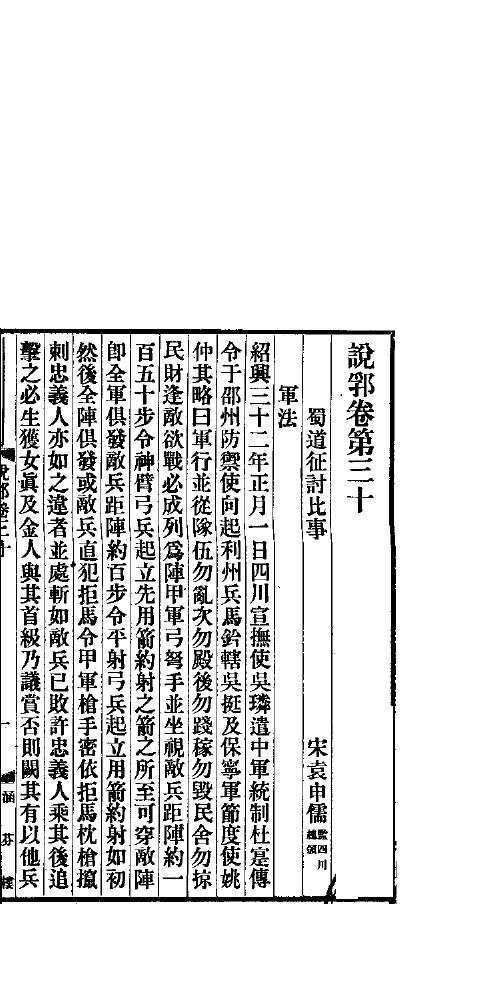 說郛卷第三十
蜀道征討比事　宋袁申儒監四川總領
軍法
紹興三十二年正月一日四川宣撫使吳璘遣中軍統制杜寔傳
令于邵州防禦使向起利州兵馬鈐轄吳挺及保寧軍節度使姚
仲其略曰軍行並從隊伍勿亂次勿殿後勿踐稼勿毀民舍勿掠
民財逢敵欲戰必成列爲陣甲軍弓弩手並坐視敵兵距陣約一
百五十步令神臂弓兵起立先用箭約射之箭之所至可穿敵陣
卽全軍俱發敵兵距陣約百步令平射弓兵起立用箭約射如初
然後全陣俱發或敵兵直犯拒馬令甲軍槍手密依拒馬枕槍攛
刺忠義人亦如之違者並處斬如敵兵已敗許忠義人乘其後追
擊之必生獲女眞及金人與其首級乃議賞否則闕其有以他兵
說郛卷三十　一　涵芬樓